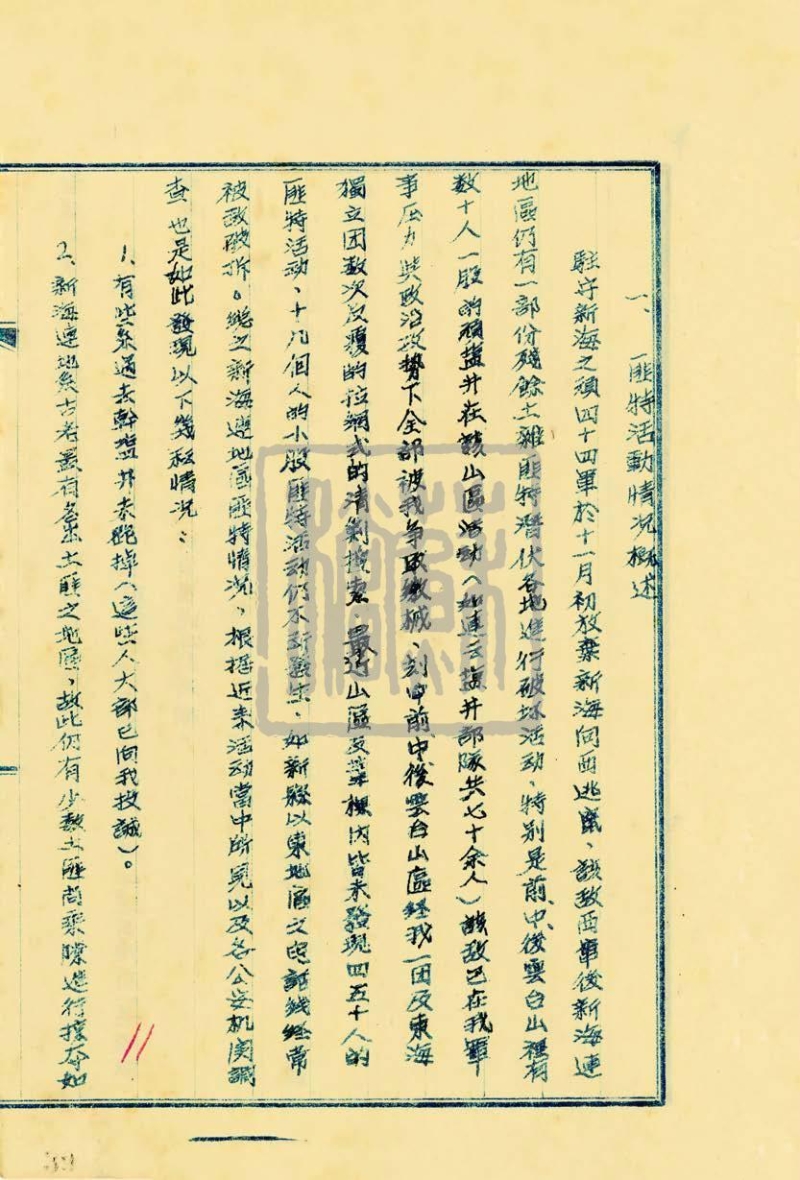 一、匪特活動情况概述
駐守新海之頑四十四軍於十一月初放棄新海向西逃竄、該敌西竄後新海連
地區仍有一部份殘餘土雜匪特潜伏各地進行破坏活动、特别是前、中、後雲台山裡有
数十人一股的頑盐丼在該山區活动（如連云塩丼部隊共七十余人）該敌已在我軍
事压力與政治攻势下全部被我争取缴械、刻由前、中、後雲台山區经我一团及東海
獨立团数次反覆的拉網式的清剿搜索、最近山區及葦棵内皆未發現四五十人的
匪特活动、十几個人的小股匪特活动仍不断發生、如新縣以東地區之电話线经常
被敌破拆。總之新海連地區匪特情况、根據近来活动當中所見以及各公安机関調
查也是如此發現以下幾種情况：
1、有些系過去幹盐丼未跑掉（這些人大部已向我投誠）。
2、新海連地
有
出土匪之地區、故此仍有少数土匪尚乘隙進行搶夺如
11